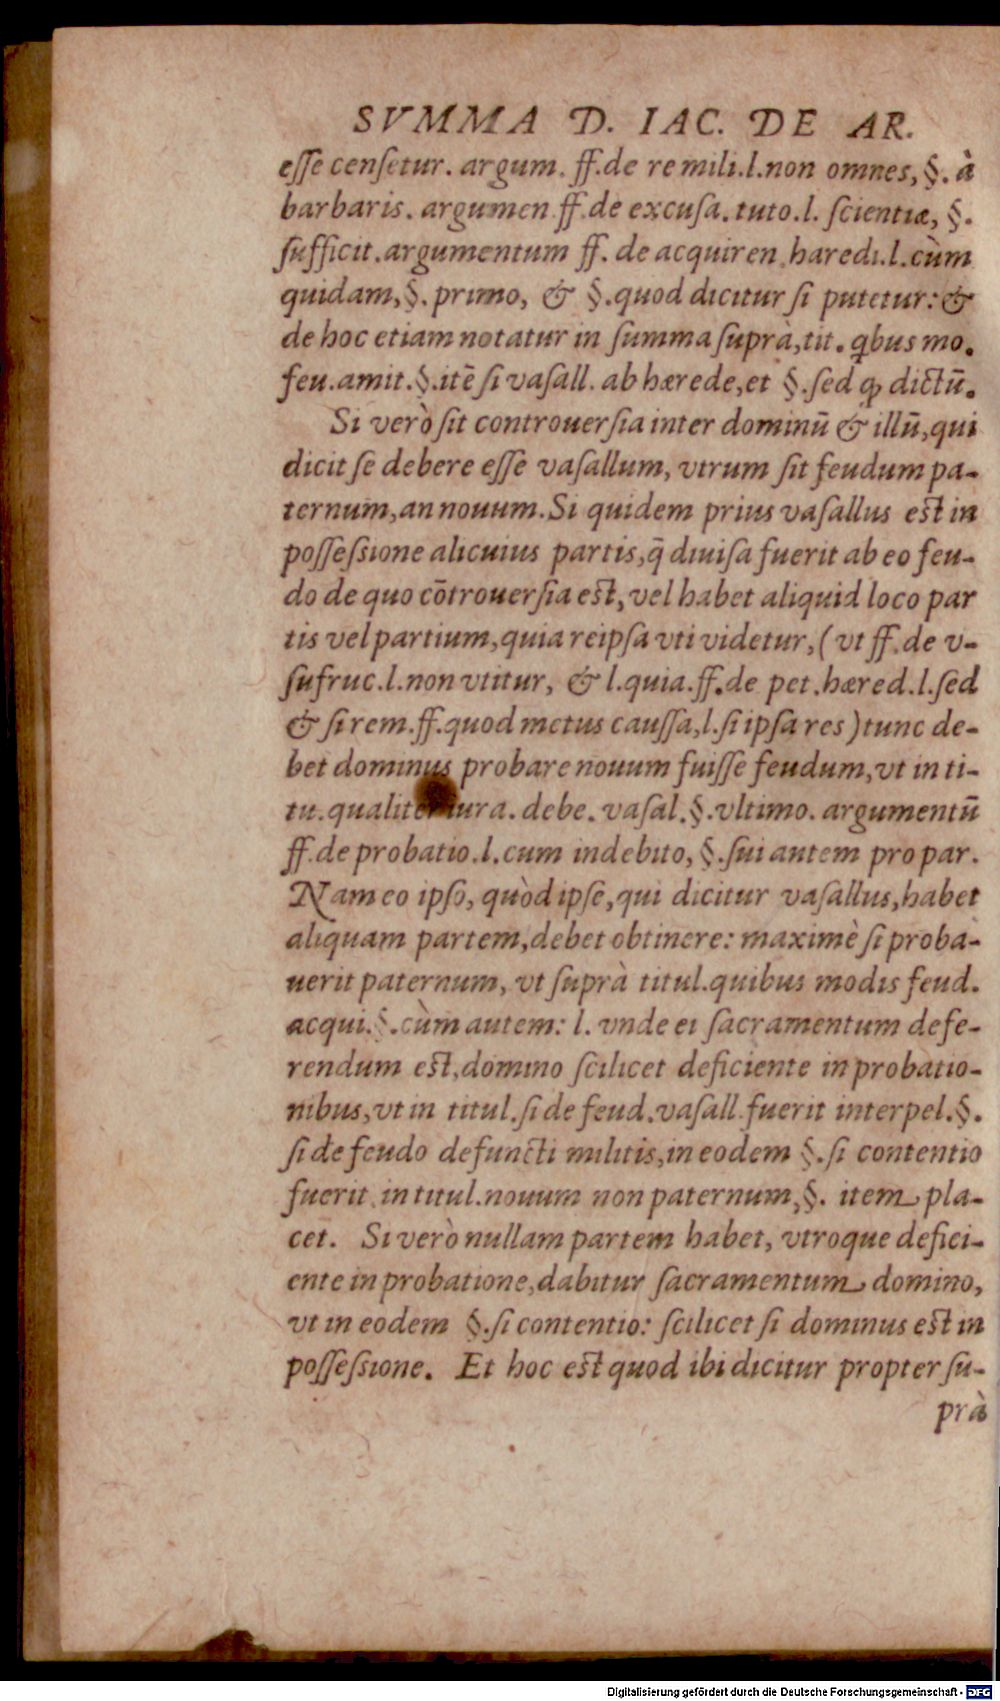 SVMMA D. IAC. DE AR.
esse censetur. argum. ff.de re mili.l.non omnes, §. à
barbaris. argumen ff.de excusa. tuto.l. scientiæ, §.
sufficit. argumentum ff. de acquiren. haredi.l.cùm
quidam, §. primo, & §.quod dicitur si putetur: &
de hoc etiam notatur in summa suprà, tit. qbus mo.
feu.amit.§.itē si vasall. ab hærede, et §.sed ꝙ dictū.
Si verò sit controuersia inter dominū & illū, qui
dicit se debere esse vasallum, vtrum sit feudum pa-
ternum, an nouum. Si quidem prius vasallus est in
possessione alicuius partis, q̄ diuisa fuerit ab eo feu-
do de quo cōtrouersia est, vel habet aliquid loco par
tis vel partium, quia reipsa vti videtur, ( vt ff.de v-
sufruc.l.non vtitur, & l.quia.ff.de pet.hæred.l.sed
& si rem.ff.quod metus caussa, l.si ipsa res ) tunc de-
bet dominus probare nouum fuisse feudum, vt in ti-
tu.qualiter iura. debe. vasal.§.vltimo. argumentū
ff.de probatio.l.cum indebito, §.sui autem pro par.
Nam eo ipso, quòd ipse, qui dicitur vasallus, habet
aliquam partem, debet obtinere: maximè si proba-
uerit paternum, vt suprà titul.quibus modis feud.
acqui.§.cùm autem: l. vnde ei sacramentum defe-
rendum est, domino scilicet deficiente in probatio-
nibus, vt in titul.si de feud.vasall.fuerit interpel.§.
si de feudo defuncti militis, in eodem §.si contentio
fuerit. in titul.nouum non paternum, §. item pla-
cet. Si verò nullam partem habet, vtroque defici-
ente in probatione, dabitur sacramentum domino,
vt in eodem §.si contentio: scilicet si dominus est in
possessione. Et hoc est quod ibi dicitur propter su-
prà
Digitalisierung gefördert durch die Deutsche Forschungsgemeinschaft - DFG